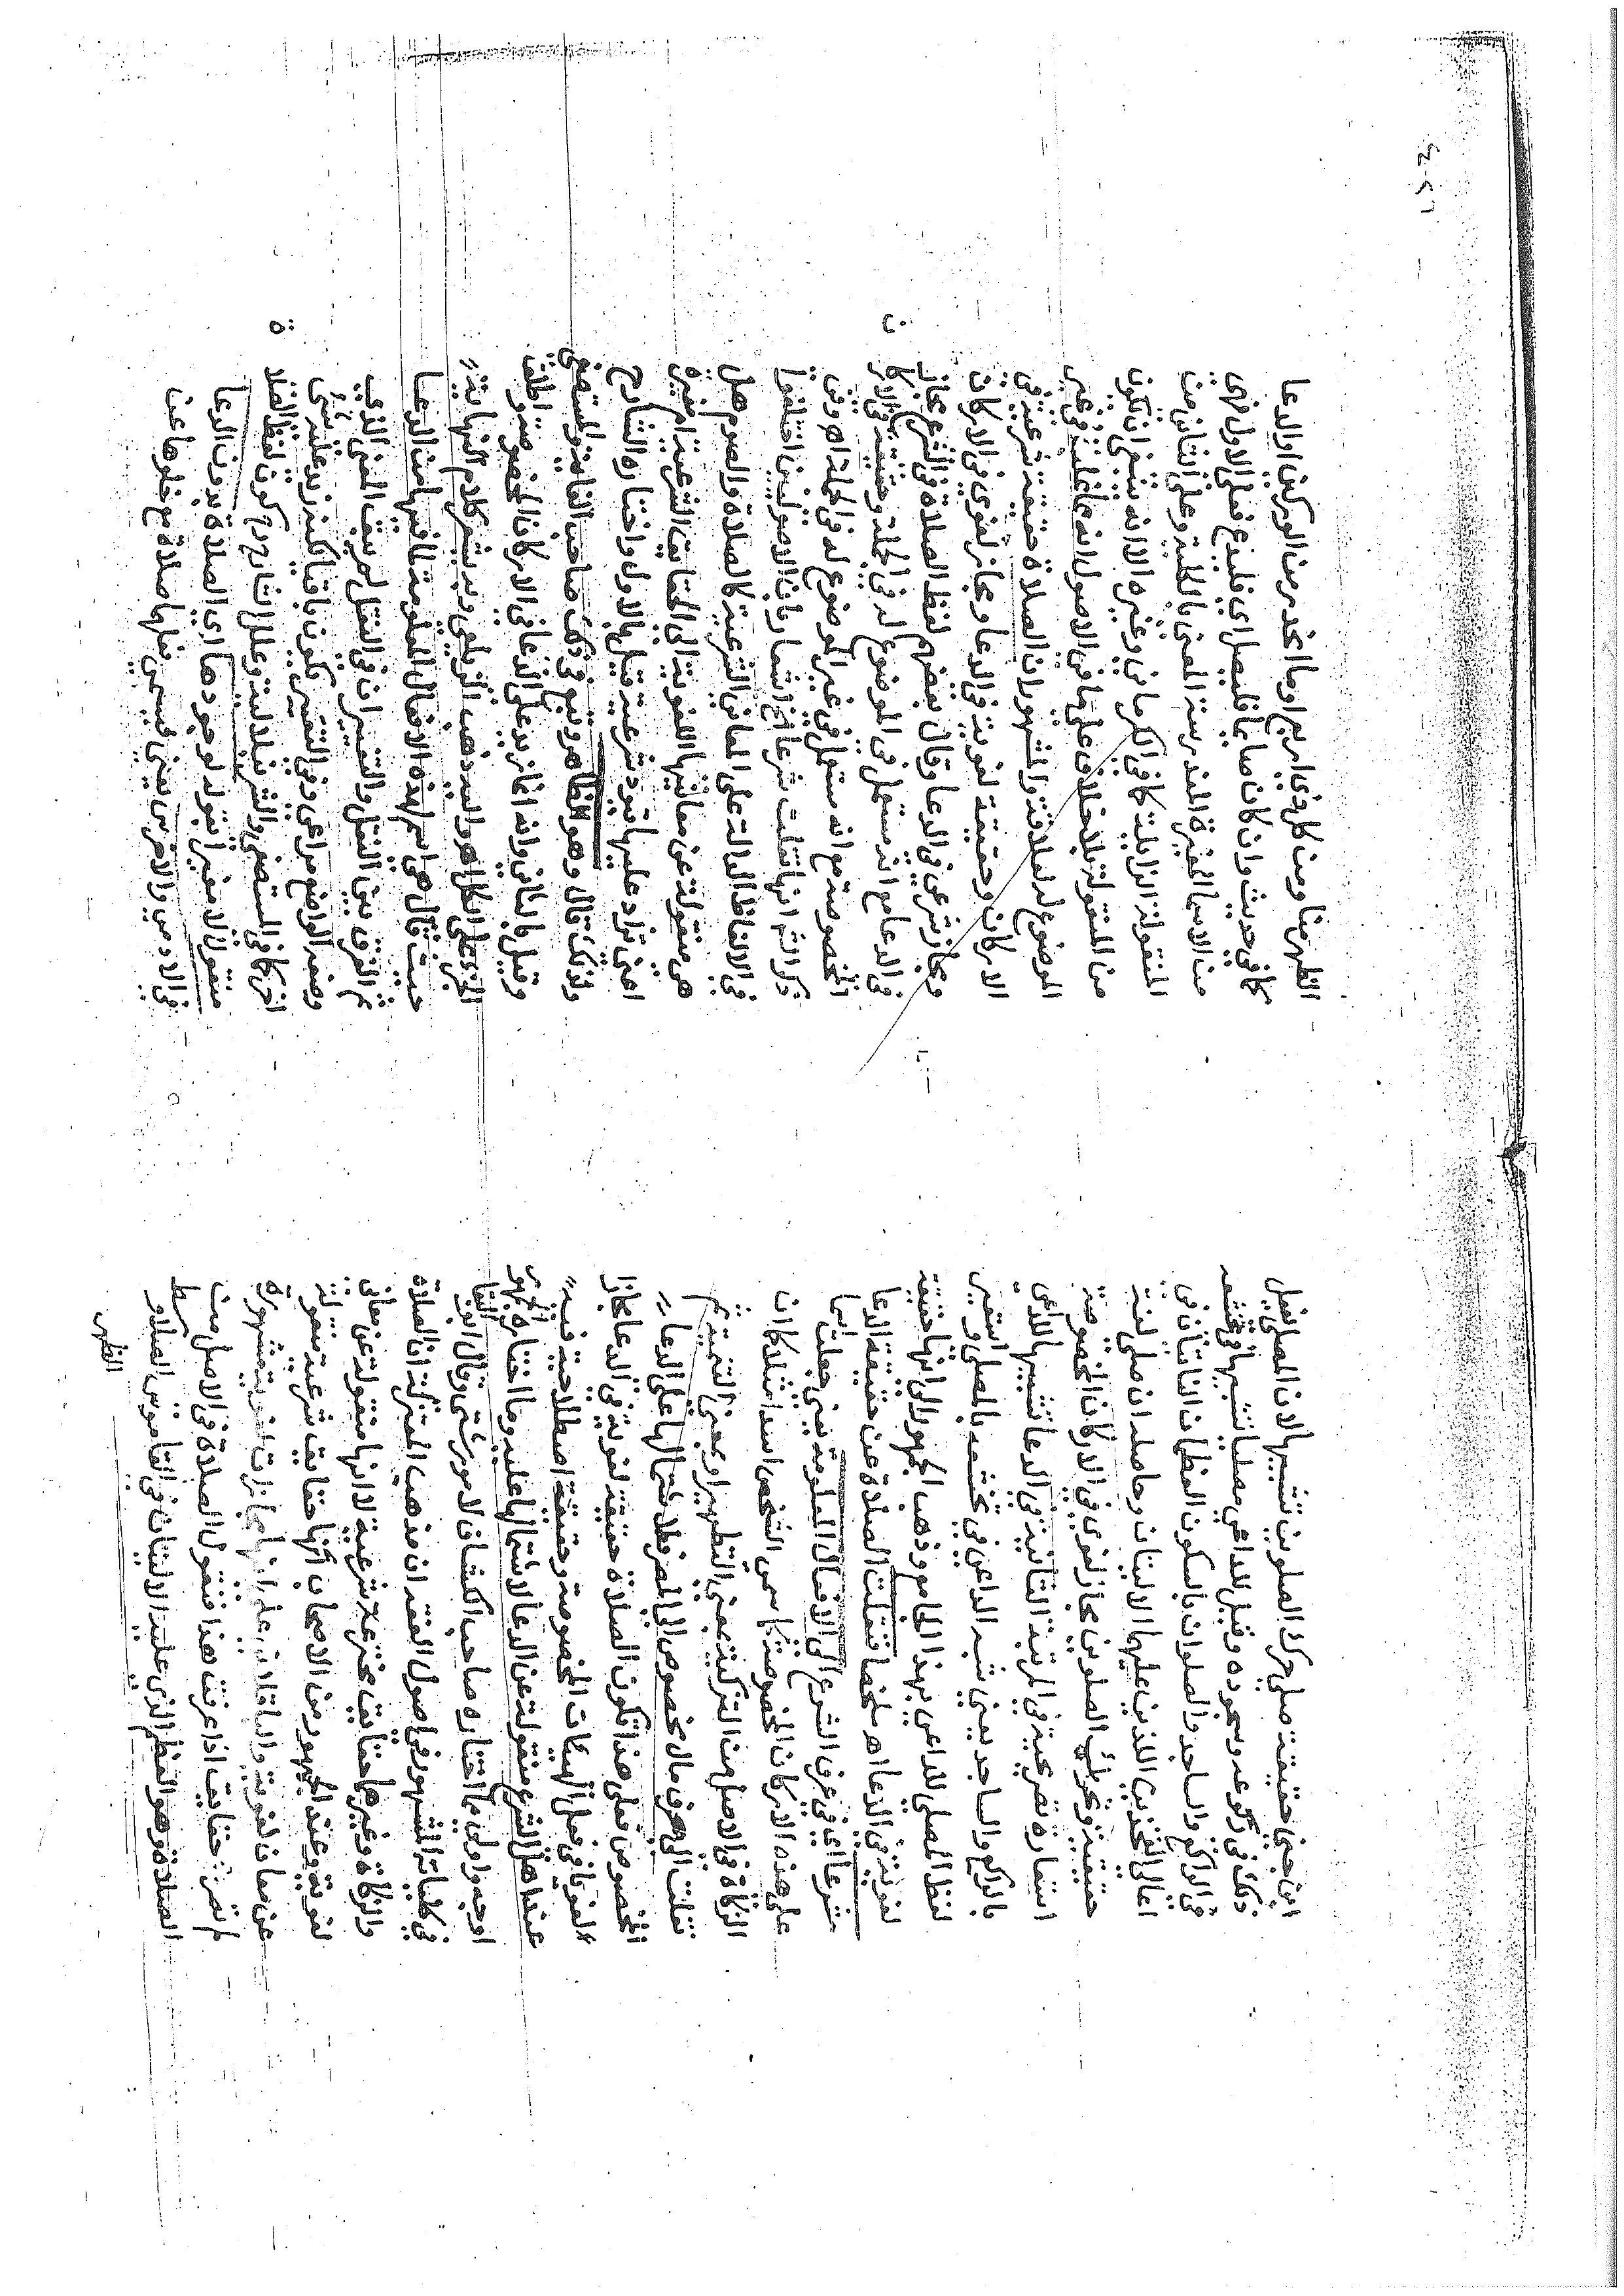 ابن جني حقيقة صلى حرك الصلوين تشبيها لان المصلي يفعل
ذلك في ركوعه وسجوده وقيل للداعي مصليا تشبيها في تخشعه
في الراكع والساجد والصلوان بالسكون العظمان الناتئان في
اعالي الفخذين اللذين عليهما الاليتان وحاصله ان صلى لغة
حقيقة وتحريك الصلوين مجاز لغوي في الاركان المخصوصة
استعارة تصريحية في المرتبة الثانية في الدعا تشبيها للداعي
بالراكع والساجد يعني شبه الداعي في تخشعه بالمصلي واستعير
لفظ المصلي للداعي بهذا الجامع وذهب الجمهور الى انها حقيقة
لغوية في الدعا اه ملخصا فنقلت الصلاة عن حقيقة الدعا
شرعا اي في عرف الشرع الى الافعال المعلومة يعني جعلت اسما
على هذه الاركان المخصوصة كما سمي الشخص اسدا مثلا كان
الزكاة في الاصل من التزكية بمعنى التطهير او بمعنى التنمية ثم
نقلت الى صرف مال مخصوص الى المصرف لاشتمالها على الدعاء
المخصوص فعلى هذا تكون الصلاة حقيقة لغوية في الدعا مجازا
لغويا في فعل الهيئات المخصوصة وحقيقة اصطلاحية فيه
عند اهل الشرع منقولة عن الدعا لاشتمالها عليه وما اختاره الجمهور
اوجه واولى مما اختاره صاحب الكشاف لامور شتى وقال ابو البقا
في كلياته المشهور في اصول الفقه ان مذهب المعتزلة ان الصلاة
والزكاة وغيرهما حقايق مخترعة شرعية لا انها منقولة عن معان
لغوية وعند الجمهور من الاصحاب انها حقايق شرعية منقولة
عن معان لغوية والباقلاني على انها مجازات لغوية مشهورة
لم تصر حقايق اذا عرفت هذا فنقول الصلاة في الاصل من
الصلا وهو العظم الذي عليه الاليتان وفي القاموس الصلا وسط
الظهر
الظهر منا ومن كل ذي اربع او ما انحدر من الوركين او الدعا
كما في حديث وان كان صائما فليصل اي فليدع فعلى الاول فهي
من الاسما المغيرة المندرسة المعنى بالكلية وعلى الثاني من
المنقولة الزايلة كما في الكرماني وغيره الا انه ينبغي ان تكون
من المنقولة بلا خلاف على ما في الاصول انه ما غلب في غير
الموضوع له لعلاقة والمشهور ان الصلاة حقيقة شرعية في
الاركان وحقيقة لغوية في الدعا ومجاز لغوي في الاركان
ومجاز شرعي في الدعا وقال بعضهم لفظ الصلاة في الشرع مجاز
في الدعا مع انه مستعمل في الموضوع له في الجملة وحقيقة في الاركان
المخصوصة مع انه مستعمل في غير الموضوع له في الجملة اه وفي
ذكر انها نقلت شرعا الخ اشعار بان الاصوليين اختلفوا
في الالفاظ الدالة على المعاني الشرعية كالصلاة والصوم هل
هي منقولة عن معانيها اللغوية الى الحقايق الشرعية ام مغيرة
اعني تزاد عليها قيود شرعية قيل بالاول واختاره الشارح
ولذلك قال وهو الظاهر وتبع في ذلك صاحب الغاية والمستصفى
وقيل بالثاني وانه انما زيد على الدعا في الاركان المخصوصة واطلق
الجزء على الكل اه واليه ذهب الزيلعي وبه يشعر كلام النهاية
حيث قال هي اسم لهذه الافعال المعلومة مما فيها من الدعا
ثم الفرق بين النقل والتغيير ان في النقل لم يبق المعنى الذي
وضعه الواضع مراعى وفي التغيير يكون باقيا لكنه زيد عليه شئ
اخر كما في المستصفى والشرنبلالية وعلل الشارح كون لفظ الصلاة
منقولا لا مغيرا بقوله لوجودها اي الصلاة بدون الدعا
في الامي والاخرس يعني فيسمى فعلها صلاة مع خلوها عن